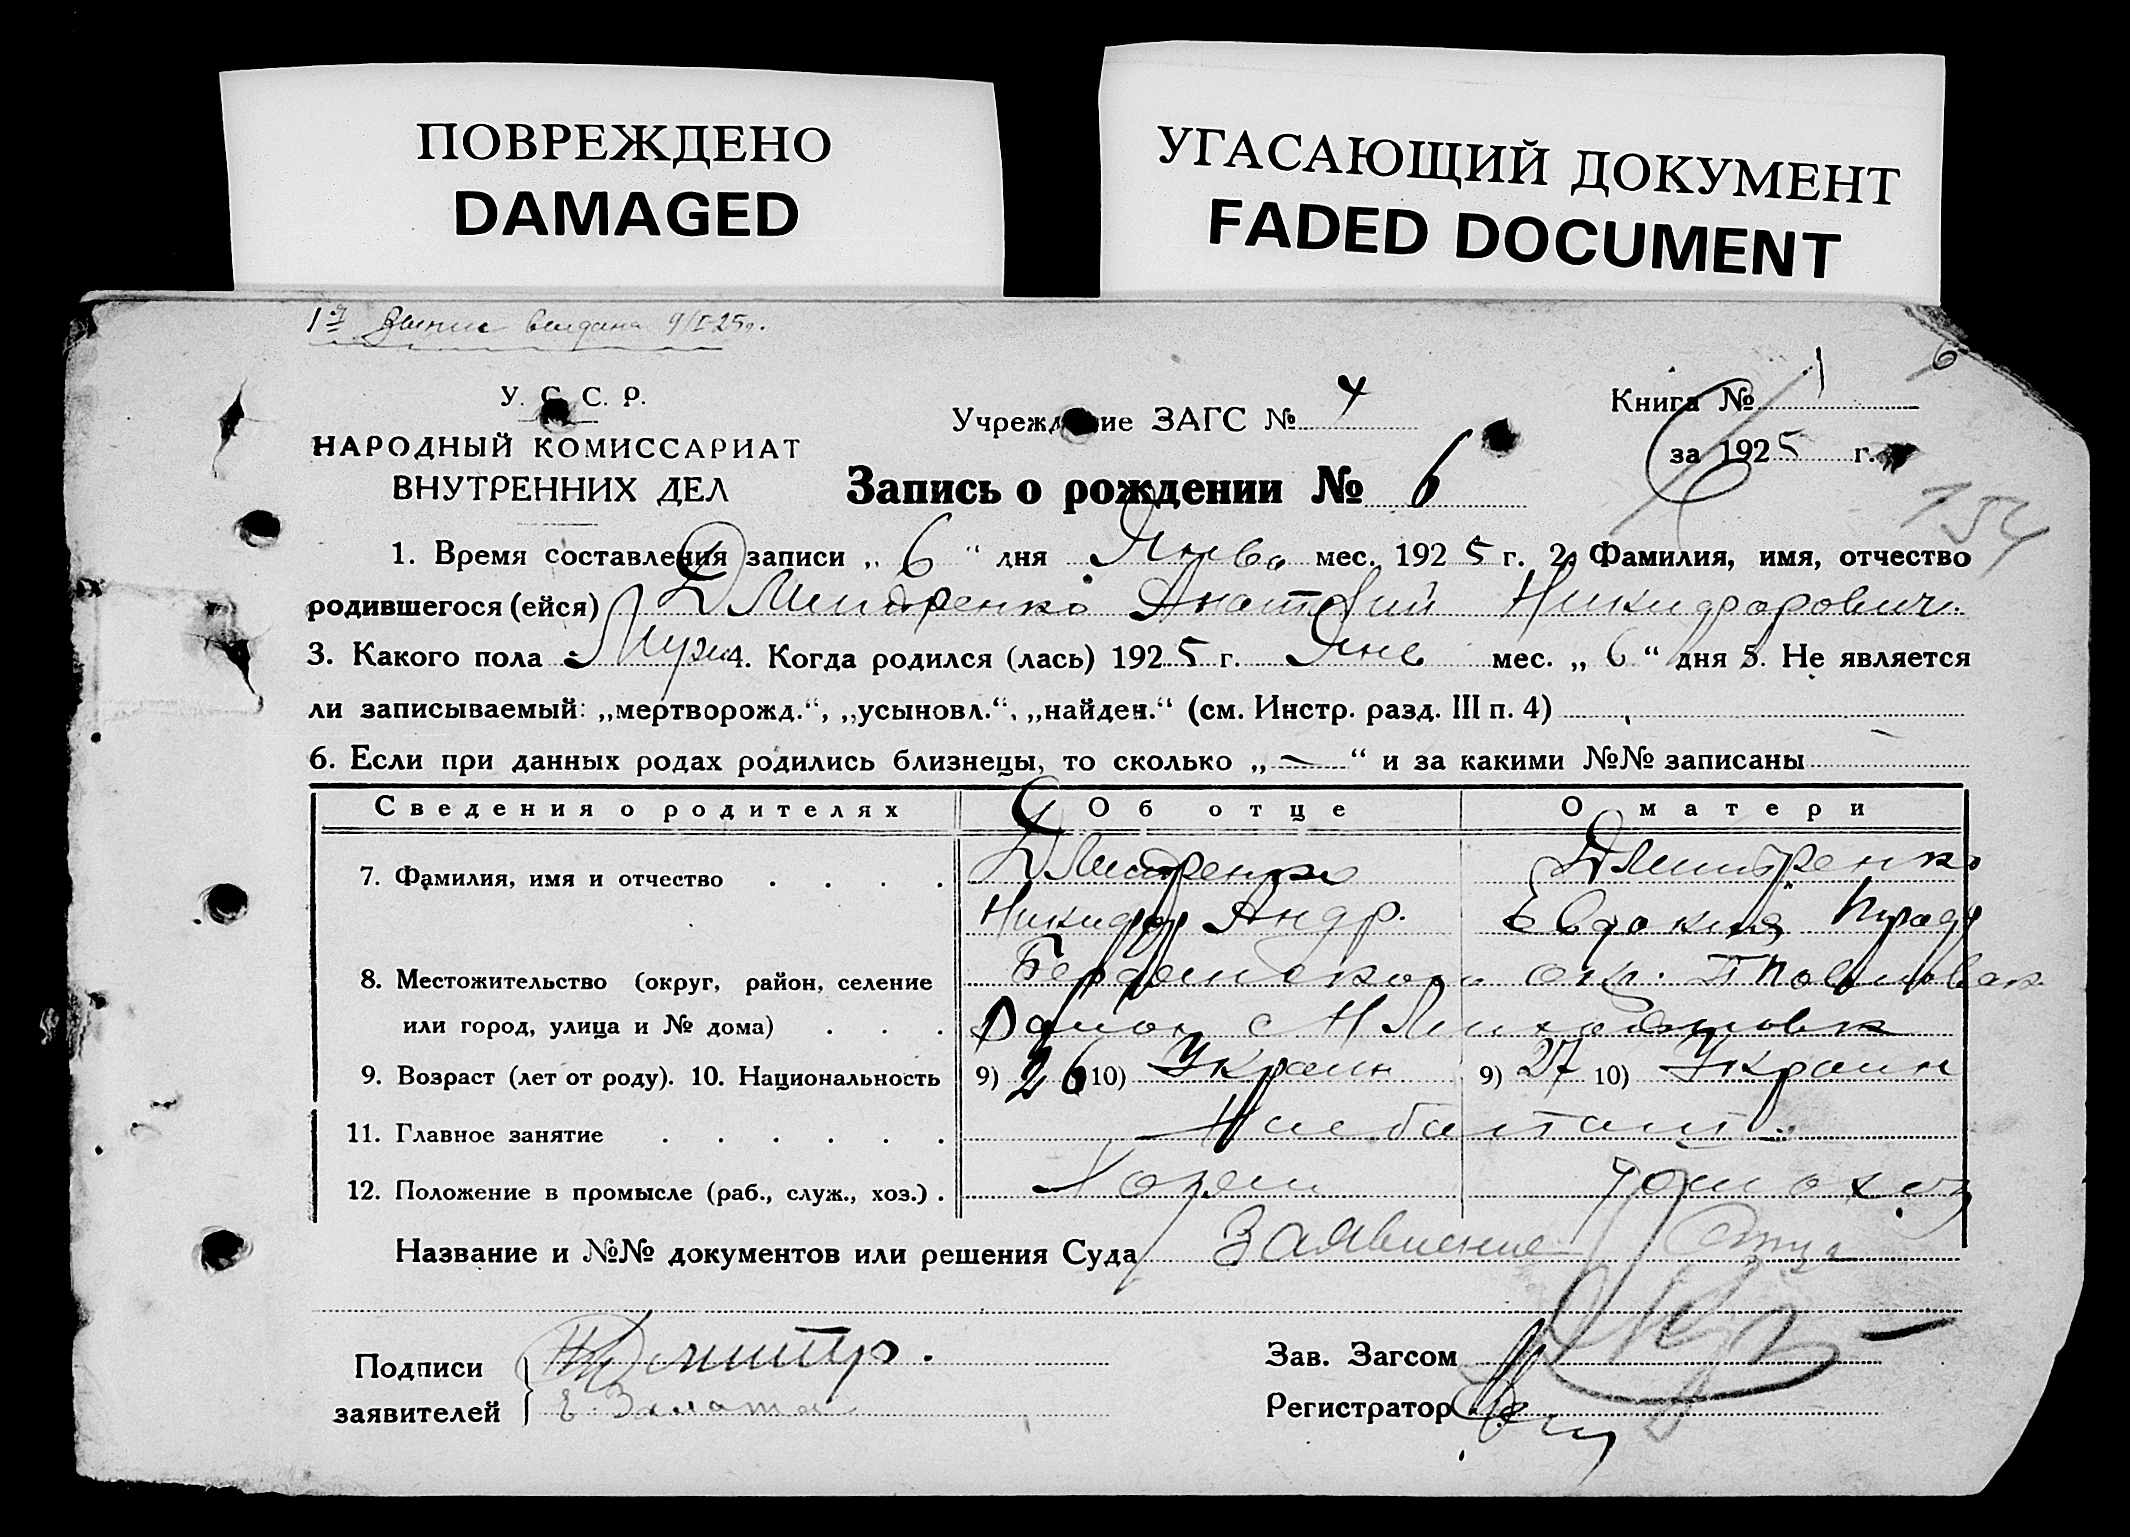 ПОВРЕЖДЕНО
DAMAGED
УГАСАЮЩИЙ ДОКУМЕНТ
FADED DOCUMENT
1я выпис выдана 9/I-25г.
6
У. С. С. Р.
НАРОДНЫЙ КОМИССАРИАТ
ВНУТРЕННИХ ДЕЛ
Учреждение ЗАГС № 4
Книга № 1
за 1925 г.
Запись о рождении № 6
154
1. Время составления записи „ 6 “ дня Янва мес. 1925 г. 2. Фамилия, имя, отчество
родившегося (ейся) Дмитренко Анатолий Никифорович.
3. Какого пола Муж 4. Когда родился (лась) 1925 г. Янв мес. „ 6 “ дня 5. Не является
ли записываемый: „мертворожд.“, „усыновл.“, „найден.“ (см. Инстр. разд. III п. 4)
6. Если при данных родах родились близнецы, то сколько „ — “ и за какими №№ записаны
Сведения о родителях Об отце О матери
7. Фамилия, имя и отчество Дмитренко Дмитренко
Никифор Андр. Евдокия
8. Местожительство (округ, район, селение Бердянского окр.
или город, улица и № дома) Район с
9. Возраст (лет от роду). 10. Национальность 9) 26 10) Украин 9) 27 10) Украин
11. Главное занятие
12. Положение в промысле (раб., служ., хоз.) . Хозяин домохоз
Название и №№ документов или решения Суда Заявление Отца
Подписи Н Дмитр.
заявителей
Зав. Загсом
Регистратор